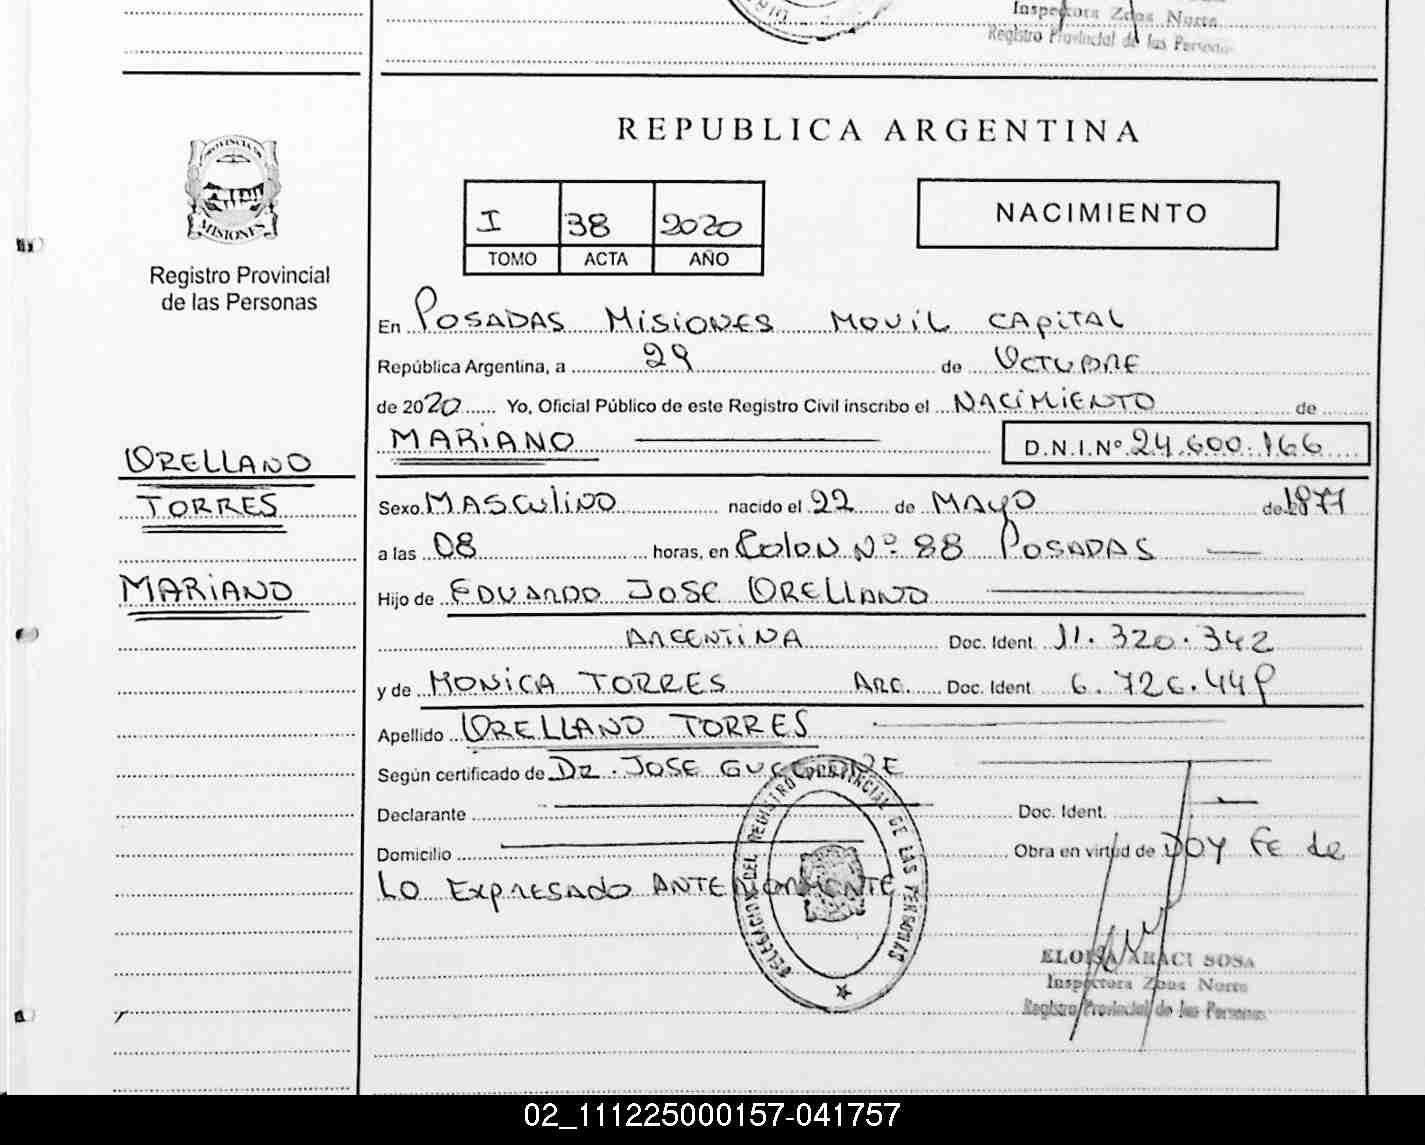 Inspectora Zona Norte
Registro Provincial de las Personas
PROVINCIA DE
MISIONES
Registro Provincial
de las Personas
REPUBLICA ARGENTINA
I 38 2020
TOMO ACTA AÑO
NACIMIENTO
En POSADAS MISIONES MOVIL CAPITAL
República Argentina, a 29 de OCTUBRE
de 2020 Yo, Oficial Público de este Registro Civil inscribo el NACIMIENTO de
MARIANO D.N.I.Nº 24.600.166
ORELLANO
TORRES
MARIANO
Sexo MASCULINO nacido el 22 de MAYO de 1877
a las 08 horas, en COLON Nº 88 POSADAS
Hijo de EDUARDO JOSE ORELLANO
ARGENTINA Doc. Ident. 11.320.342
y de MONICA TORRES ARG. Doc. Ident. 6.726.449
Apellido ORELLANO TORRES
Según certificado de Dr. JOSE
Declarante Doc. Ident.
Domicilio Obra en virtud de DOY FE de
LO EXPRESADO ANTERIORMENTE
DELEGACION DEL REGISTRO PROVINCIAL DE LAS PERSONAS
ELOISA ARACI SOSA
Inspectora Zona Norte
Registro Provincial de las Personas
02_111225000157-041757